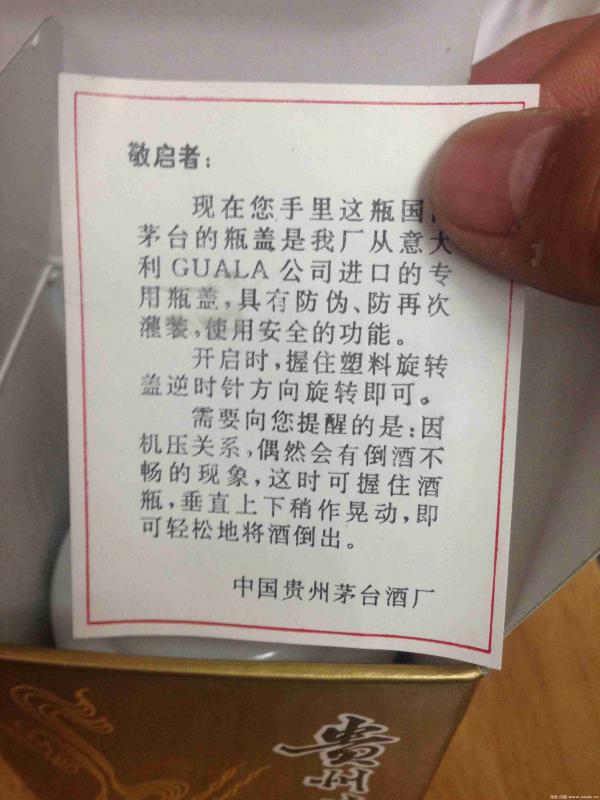 敬启者：
现在您手里这瓶国
茅台的瓶盖是我厂从意大
利GUALA公司进口的专
用瓶盖，具有防伪、防再次
灌装，使用安全的功能。
开启时，握住塑料旋转
盖逆时针方向旋转即可。
需要向您提醒的是：因
机压关系，偶然会有倒酒不
畅的现象，这时可握住酒
瓶，垂直上下稍作晃动，即
可轻松地将酒倒出。
中国贵州茅台酒厂
貴州